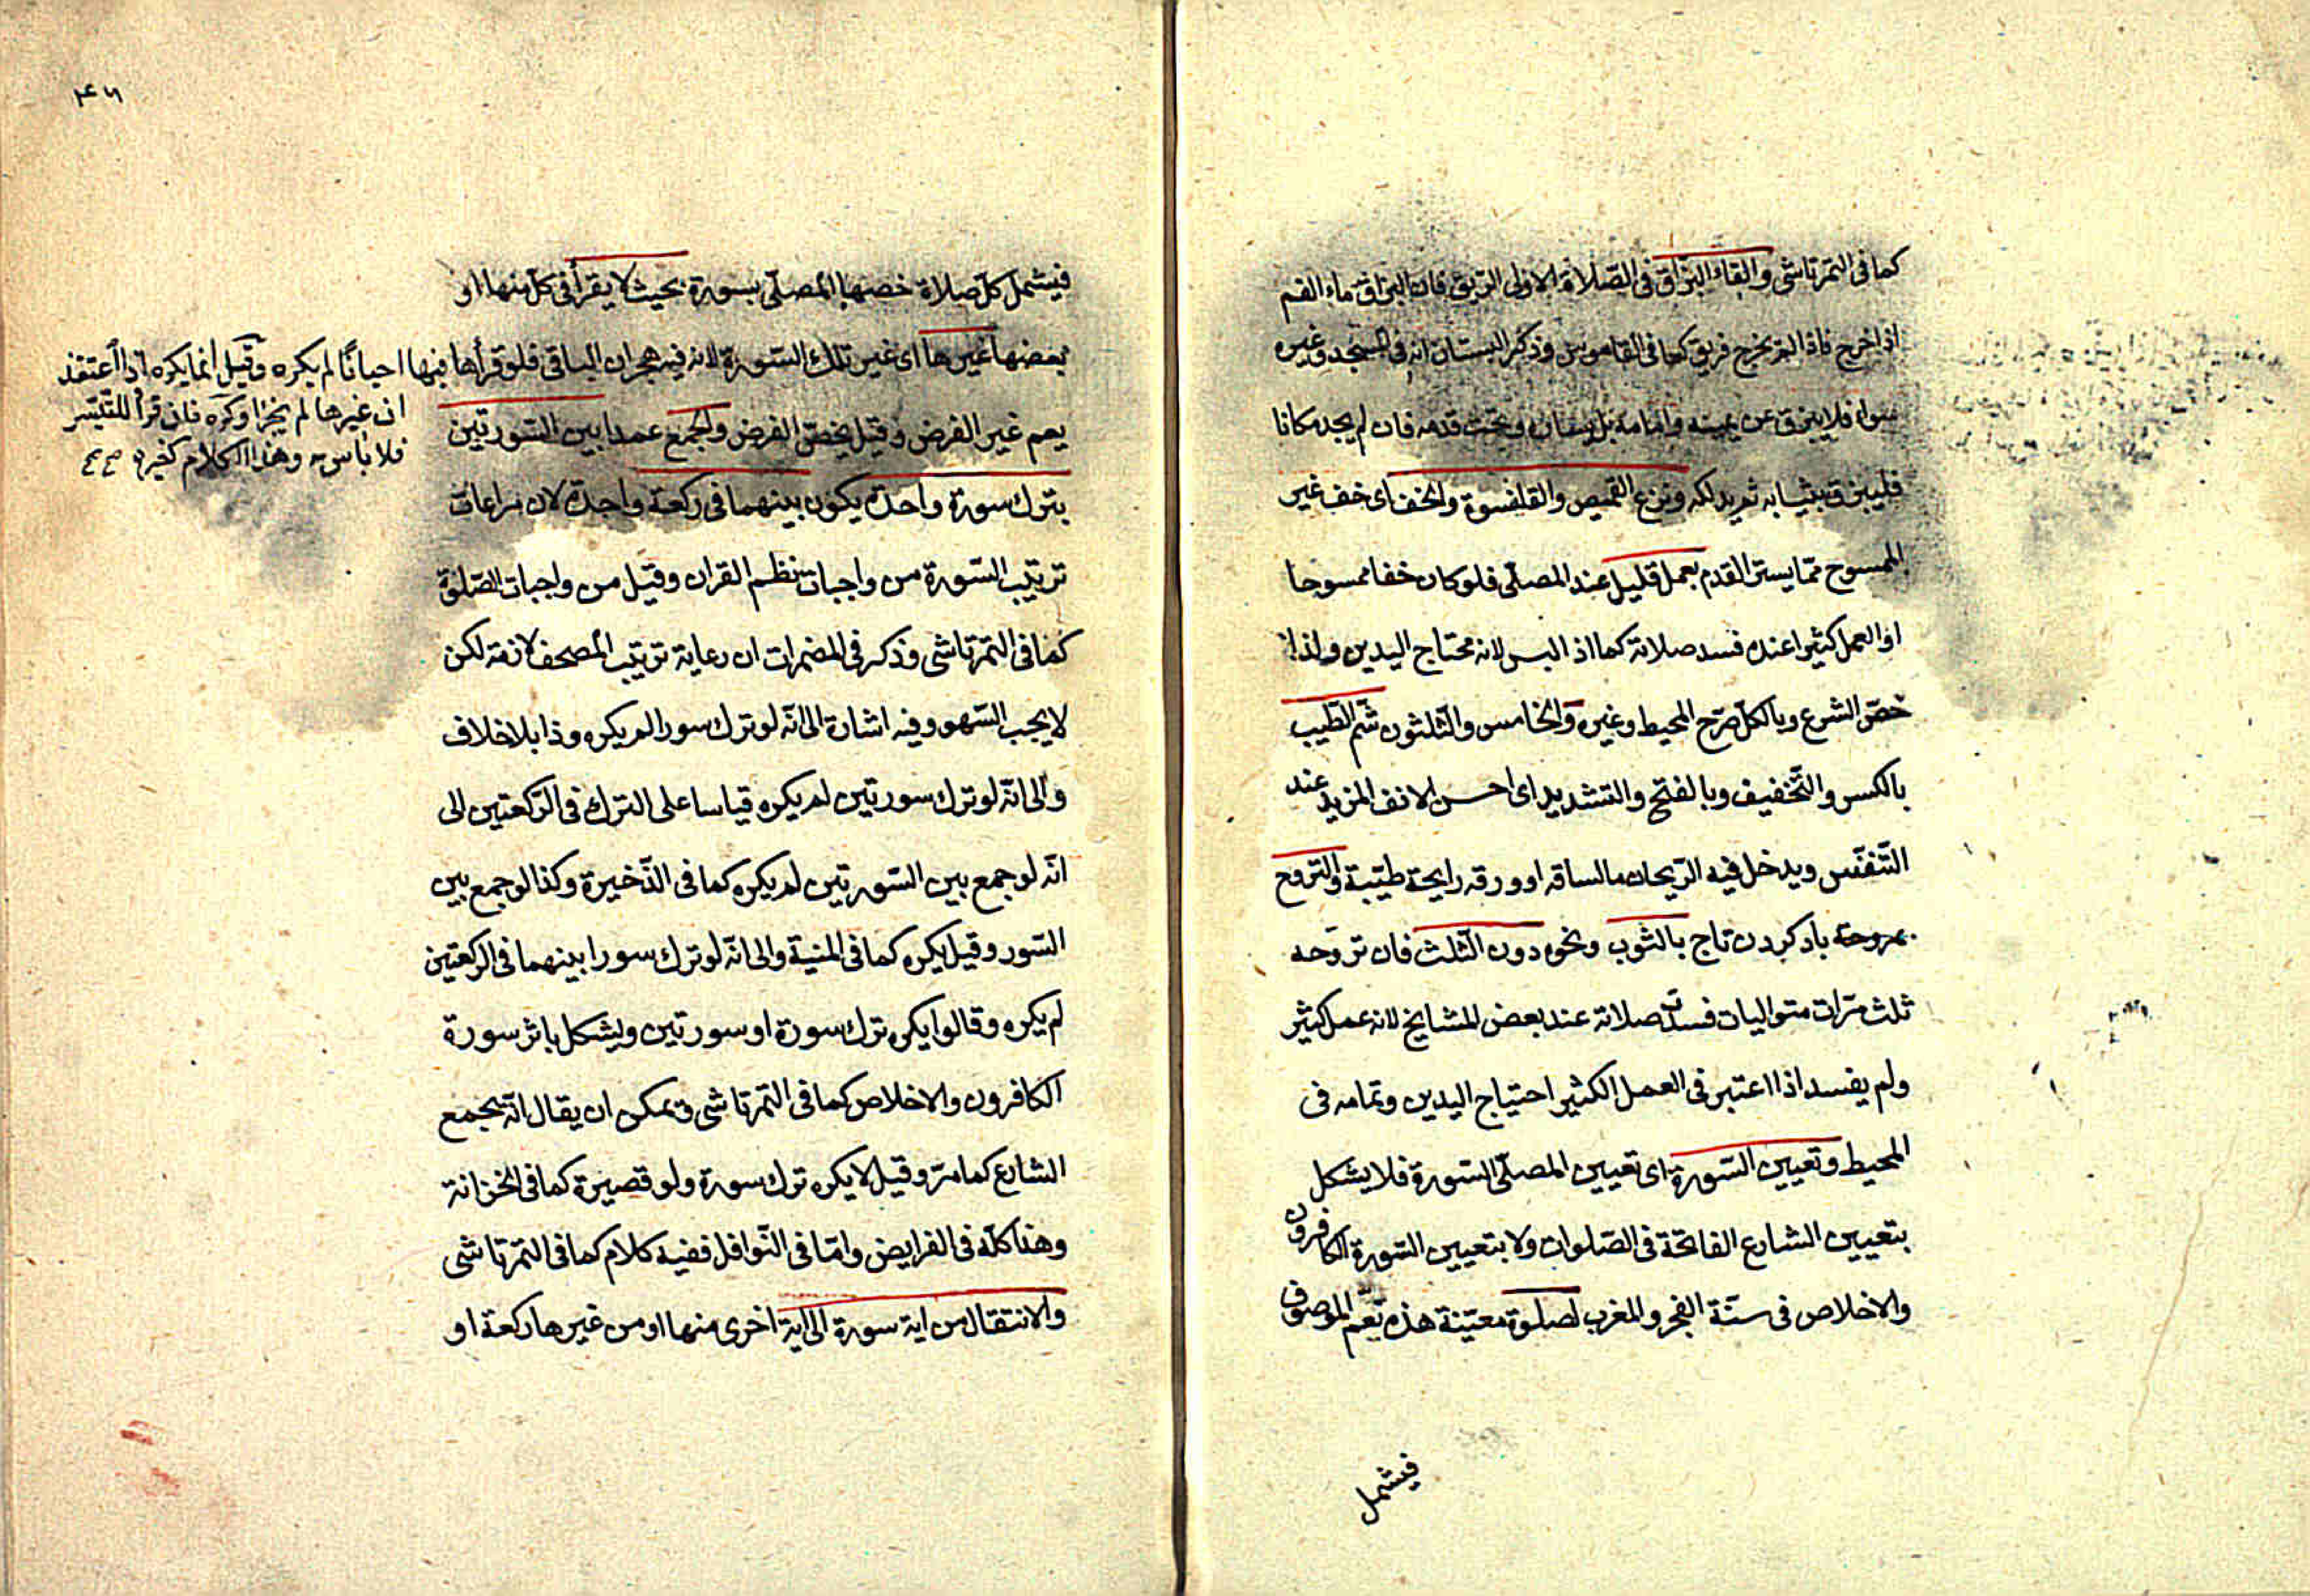 كما فى التمرتاشى والقاء البزاق فى الصّلاة الاولى البزيق فان البزاق ماء الفم
اذا خرج فاذا لم يخرج فريق كما فى القاموس وذكر البستان انه فى المسجد وغيره
سواء فلا يبزق عن يمينه وامامه بل يساره وتحت قدمه فان لم يجد مكانا
فليبزق بثيابه ثم يدلكه ونزع القميص والقلنسوة والخف اى خف غير
الممسوح ممّا يستر القدم بعمل قليل عند المصلّى فلو كان خفا ممسوحا
او العمل كثيرا عنده فسد صلاته كما اذ البس لانه محتاج اليدين ولذا
خصّ الشرع وبالكلّ صرّح المحيط وغيره والخامس والثّلثون شمّ الطّيب
بالكسر والتّخفيف وبالفتح والتشديد اى احسن الانف المزيد عند
التّنفّس ويدخل فيه الرّيحان مالساقه او ورقه رايحة طيّبة والتروح
بمروحة باد كردن تاج بالثوب ونحوه دون الثّلث فان تروّحه
ثلث مرّات متواليات فسدت صلاته عند بعض المشايخ لانه عمل كثير
ولم يفسد اذا اعتبر فى العمل الكثير احتياج اليدين وتمامه فى
المحيط وتعيين السّورة اى تعيين المصلّى السّورة فلا يشكل
بتعيين الشارع الفاتحة فى الصّلوات ولا بتعيين السّورة الكافرون
والاخلاص فى سنّة الفجر والمغرب لصلوة معيّنة هذه تعمّ الموصوف
فيشمل
٤٦
فيشمل كلّ صلاة خصها المصلّى بسورة بحيث لا يقرأ فى كلّ منها او
بعضها غيرها اى غير تلك السّورة لانه فيه هجران الباقى فلو قرأها فيها احيانًا لم يكره وقيل انما يكره اذا اعتقد
ان غيرها لم يجز او كره فان قرأ للتيسّر
فلا بأس به وهذا الكلام كغيره
يعم غير الفرض وقيل يخصّ الفرض والجمع عمدا بين السّورتين
بترك سورة واحدة يكون بينهما فى ركعة واحدة لان مراعات
ترتيب السّورة من واجبات نظم القران وقيل من واجبات الصّلوة
كما فى التمرتاشى وذكر فى المضمرات ان رعاية ترتيب المصحف لازمة لكن
لا يجب السّهو وفيه اشارة الى انّه لو ترك سورا لم يكره وذا بلا خلاف
والى انّه لو ترك سورتين لم يكره قياسا على الترك فى الرّكعتين الى
انّه لو جمع بين السّورتين لم يكره كما فى الذّخيرة وكذا لو جمع بين
السّور وقيل يكره كما فى المنية والى انّه لو ترك سورا بينهما فى الركعتين
لم يكره وقالوا يكره ترك سورة او سورتين ويشكل باثر سورة
الكافرون والاخلاص كما فى التمرتاشى ويمكن ان يقال انّه بجمع
الشارع كما مرّ وقيل لا يكره ترك سورة ولو قصيرة كما فى الخزانة
وهذا كلّه فى الفرايض وامّا فى النّوافل ففيه كلام كما فى التمرتاشى
والانتقال من اية سورة الى اية اخرى منها او من غيرها ركعة او